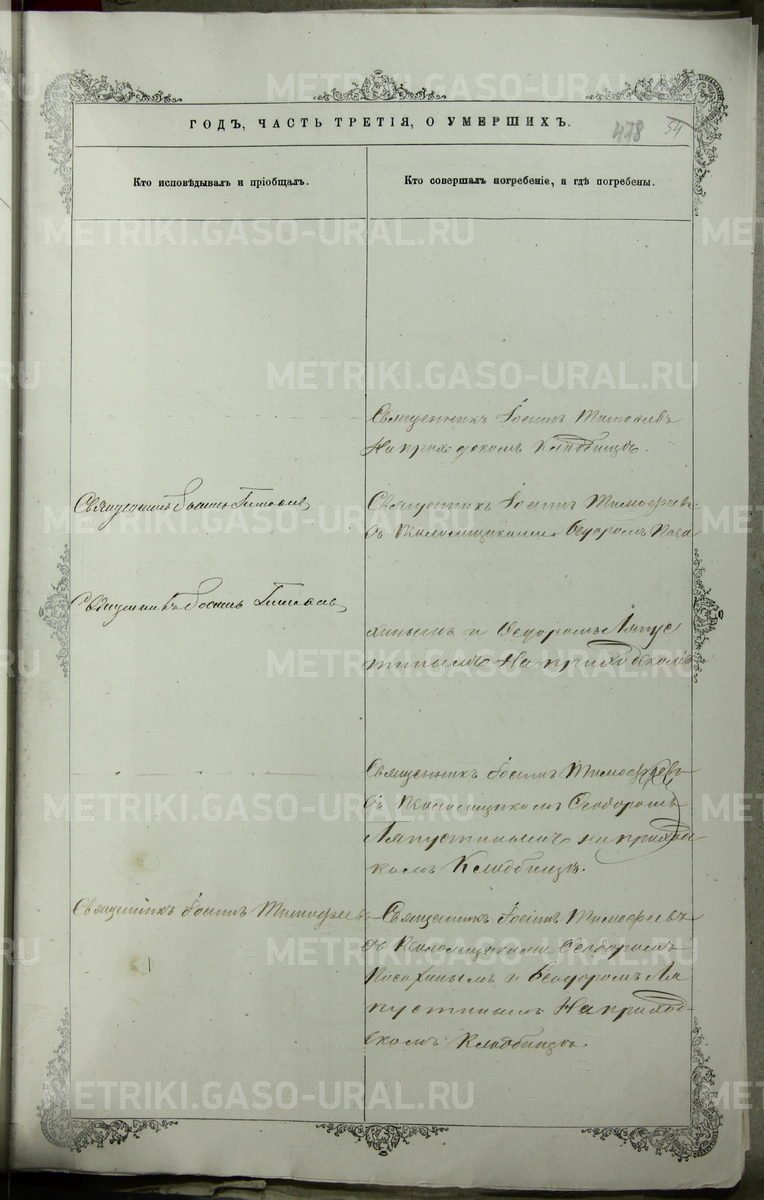 ГОДЪ, ЧАСТЬ ТРЕТІЯ, О УМЕРШИХЪ.
478
54
Кто исповѣдывалъ и пріобщалъ.
Кто совершалъ погребеніе, и гдѣ погребены.
Священникъ Іоаннъ Тимофеевъ
На приходскомъ Кладбищѣ.
Священникъ Іоаннъ Тимофеевъ
Священникъ Іоаннъ Тимофеевъ
съ Псаломщиками Ѳедоромъ Коса
Священникъ Іоаннъ Тимофеевъ
хинымъ и Ѳедоромъ Ляпус
тинымъ На приходскомъ
Священникъ Іоаннъ Тимофеевъ
съ Псаломщикомъ Ѳеодоромъ
Ляпустинымъ на приход
комъ Кладбищѣ.
Священникъ Іоаннъ Тимофеевъ
Священникъ Іоаннъ Тимофеевъ
съ Псаломщиками Ѳеодоромъ
Косахинымъ и Ѳеодоромъ Ля
пустинымъ На приход-
скомъ Кладбищѣ.
METRIKI.GASO-URAL.RU